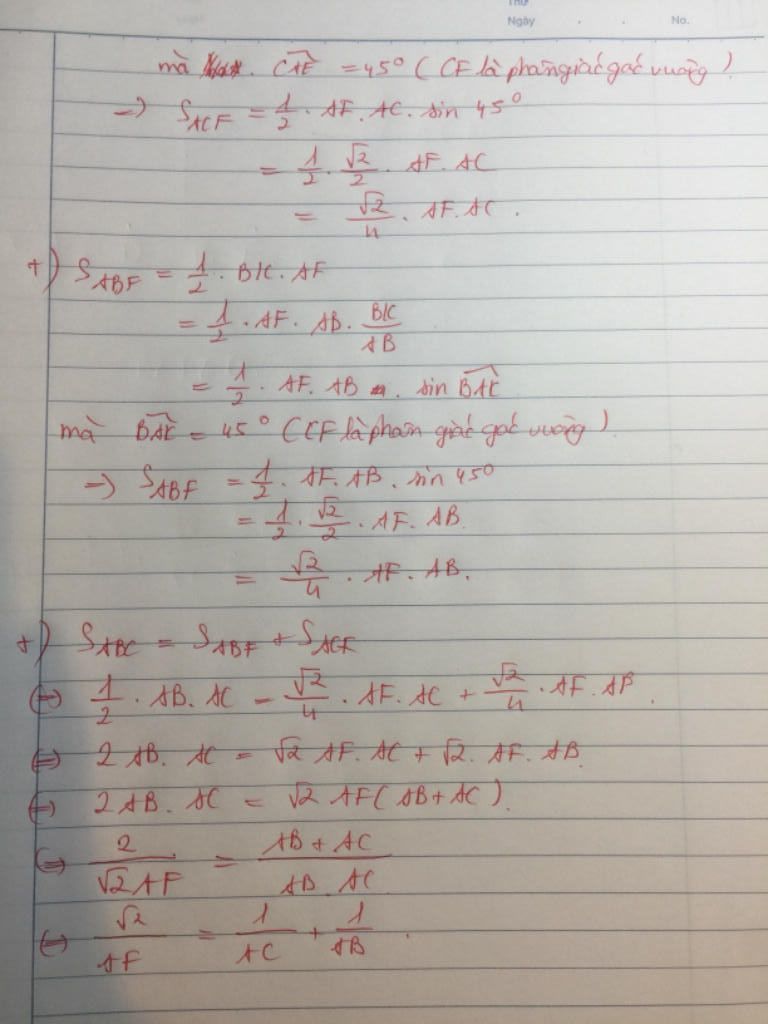 Thứ
Ngày . . No.
mà . CAE = 45° (CF là phân giác góc vuông)
→) S_ACF = 1/2 . AF . AC . sin 45°
= 1/2 . √2/2 . AF . AC
= √2/4 . AF . AC .
+) S_ABF = 1/2 . BK . AF
= 1/2 . AF . AB . BK/AB
= 1/2 . AF . AB . sin BAK
mà BAE = 45° (CF là phân giác góc vuông)
→) S_ABF = 1/2 . AF . AB . sin 45°
= 1/2 . √2/2 . AF . AB.
= √2/4 . AF . AB.
+) S_ABC = S_ABF + S_ACF
(=) 1/2 . AB . AC = √2/4 . AF . AC + √2/4 . AF . AB .
(=) 2 AB . AC = √2 AF . AC + √2 . AF . AB
(=) 2 AB . AC = √2 AF (AB + AC).
(=) 2/√2 AF = AB + AC/AB . AC
(=) √2/AF = 1/AC + 1/AB .